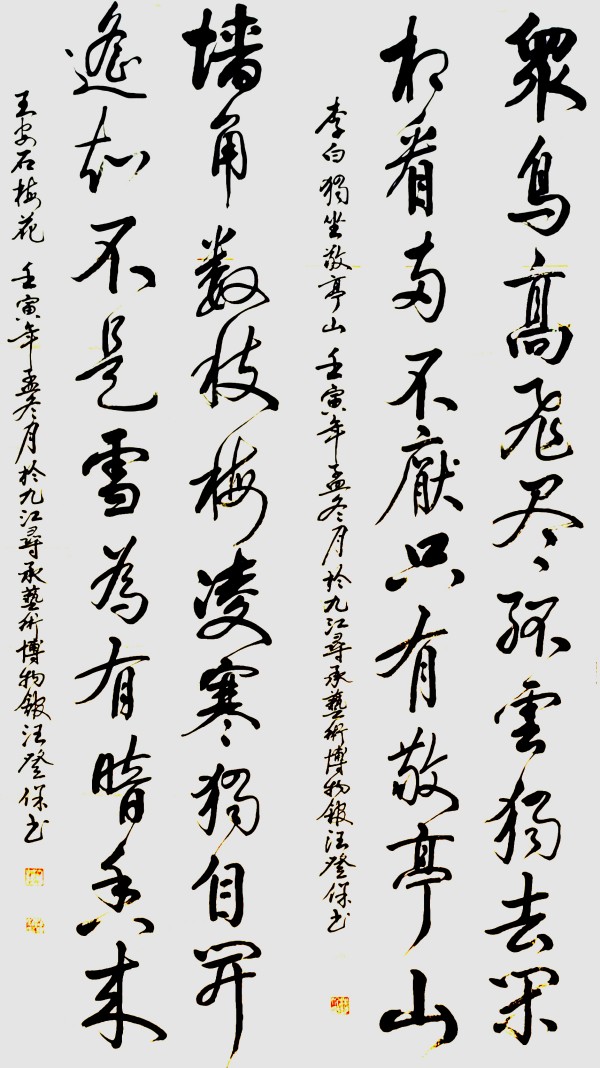 眾鳥高飛尽孤雲獨去閑
相看兩不厭只有敬亭山
李白獨坐敬亭山 壬寅年孟冬月於九江尋承藝術博物館汪登保书
墙角数枝梅凌寒獨自開
遙知不是雪為有暗香来
王安石梅花 壬寅年孟冬月於九江尋承藝術博物館汪登保书